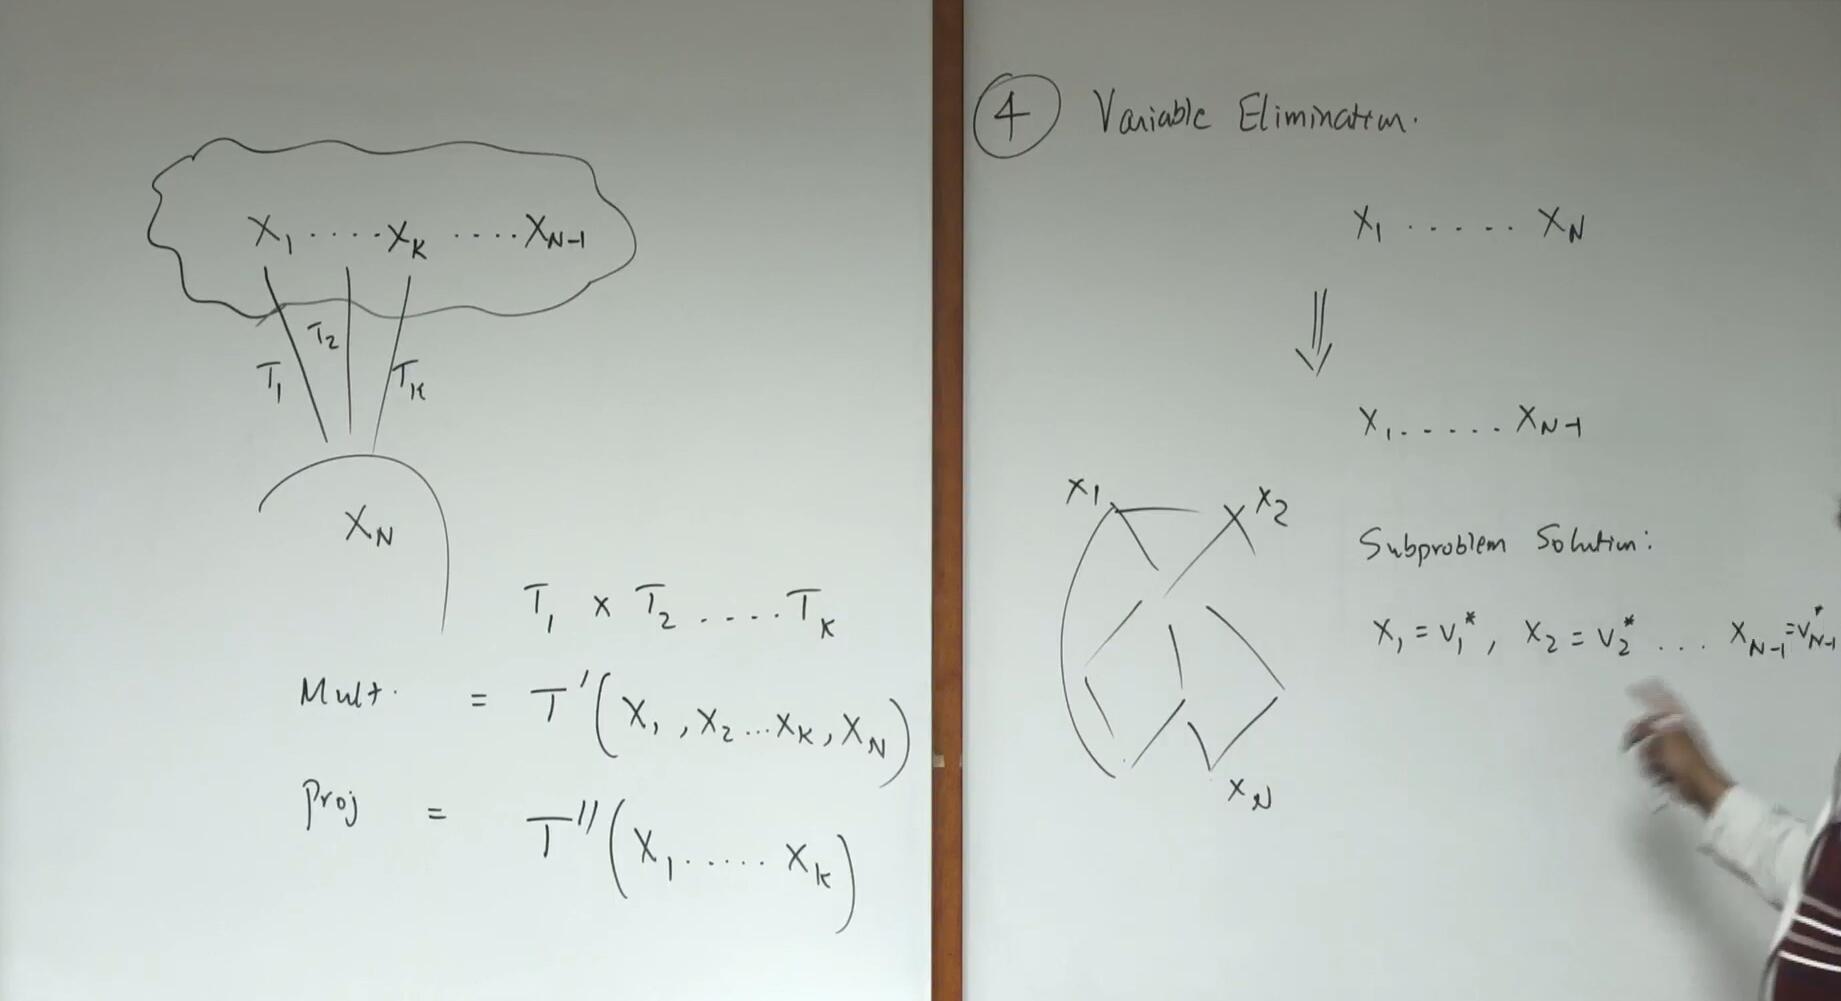 X₁ .... X_K .... X_{N-1}
T₁ T₂ T_K
X_N
T₁ × T₂ .... T_K
Mult. = T'(X₁, X₂ ... X_K, X_N)
Proj = T''(X₁ ..... X_K)
④ Variable Elimination.
X₁ ...... X_N
⇓
X₁ ...... X_{N-1}
X₁ X₂
X_N
Subproblem Solution:
X₁ = V₁*, X₂ = V₂* ... X_{N-1} = V*_{N-1}